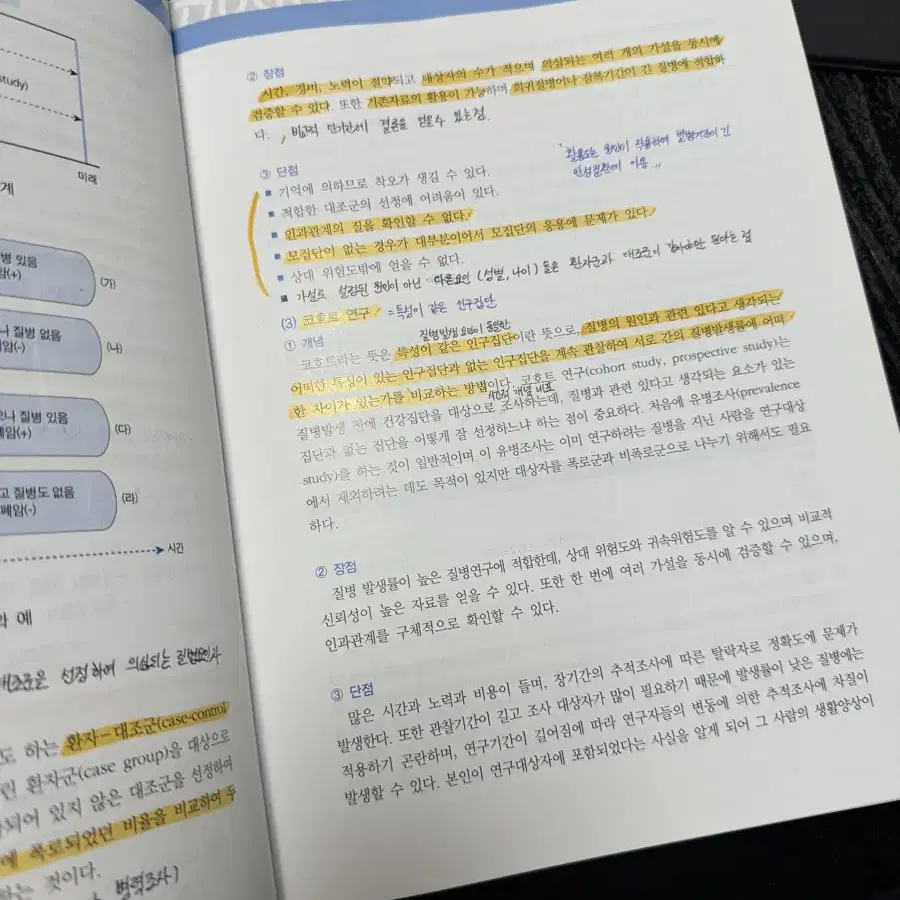 study)
미래
계
병 있음
암(+)
(가)
나 질병 없음
암(-)
(나)
으나 질병 있음
폐암(+)
(다)
고 질병도 없음
폐암(-)
(라)
시간
와 예
대조군을 선정하여 의심되는 질병요인과
도 하는 환자-대조군(case-control
린 환자군(case group)을 대상으로
되어 있지 않은 대조군을 선정하여
에 폭로되었던 비율을 비교하여 두
하는 것이다.
병력조사)
② 장점
시간, 경비, 노력이 절약되고 대상자의 수가 적으며 의심되는 여러 개의 가설을 동시에
검증할 수 있다. 또한 기존자료의 활용이 가능하며 희귀질병이나 잠복기간이 긴 질병에 적합하
다. , 비교적 단기간에 결론을 얻을수 있는점.
원인이 작용하여 발병기간이 긴
만성질환에 이용
③ 단점
■ 기억에 의하므로 착오가 생길 수 있다.
■ 적합한 대조군의 선정에 어려움이 있다.
■ 인과관계의 질을 확인할 수 없다.
■ 모집단이 없는 경우가 대부분이어서 모집단의 응용에 문제가 있다.
■ 상대 위험도밖에 얻을 수 없다.
■ 가설로 설정된 원인이 아닌 다른요인 (성별, 나이) 등은 환자군과 대조군이 같아야만 된다는 점
(3) 코호트 연구 = 특성이 같은 인구집단
① 개념
질병발생 요인이 동일한
코호트라는 뜻은 특성이 같은 인구집단이란 뜻으로, 질병의 원인과 관련 있다고 생각되는
어떠한 특성이 있는 인구집단과 없는 인구집단을 계속 관찰하여 서로 간의 질병발생률에 어떠
한 차이가 있는가를 비교하는 방법이다. 코호트 연구(cohort study, prospective study)는
시간적 개념 내포
질병발생 전에 건강집단을 대상으로 조사하는데, 질병과 관련 있다고 생각되는 요소가 있는
집단과 없는 집단을 어떻게 잘 선정하느냐 하는 점이 중요하다. 처음에 유병조사(prevalence
study)를 하는 것이 일반적이며 이 유병조사는 이미 연구하려는 질병을 지닌 사람을 연구대상
에서 제외하려는 데도 목적이 있지만 대상자를 폭로군과 비폭로군으로 나누기 위해서도 필요
하다.
② 장점
질병 발생률이 높은 질병연구에 적합한데, 상대 위험도와 귀속위험도를 알 수 있으며 비교적
신뢰성이 높은 자료를 얻을 수 있다. 또한 한 번에 여러 가설을 동시에 검증할 수 있으며,
인과관계를 구체적으로 확인할 수 있다.
③ 단점
많은 시간과 노력과 비용이 들며, 장기간의 추적조사에 따른 탈락자로 정확도에 문제가
발생한다. 또한 관찰기간이 길고 조사 대상자가 많이 필요하기 때문에 발생률이 낮은 질병에는
적용하기 곤란하며, 연구기간이 길어짐에 따라 연구자들의 변동에 의한 추적조사에 차질이
발생할 수 있다. 본인이 연구대상자에 포함되었다는 사실을 알게 되어 그 사람의 생활양상이